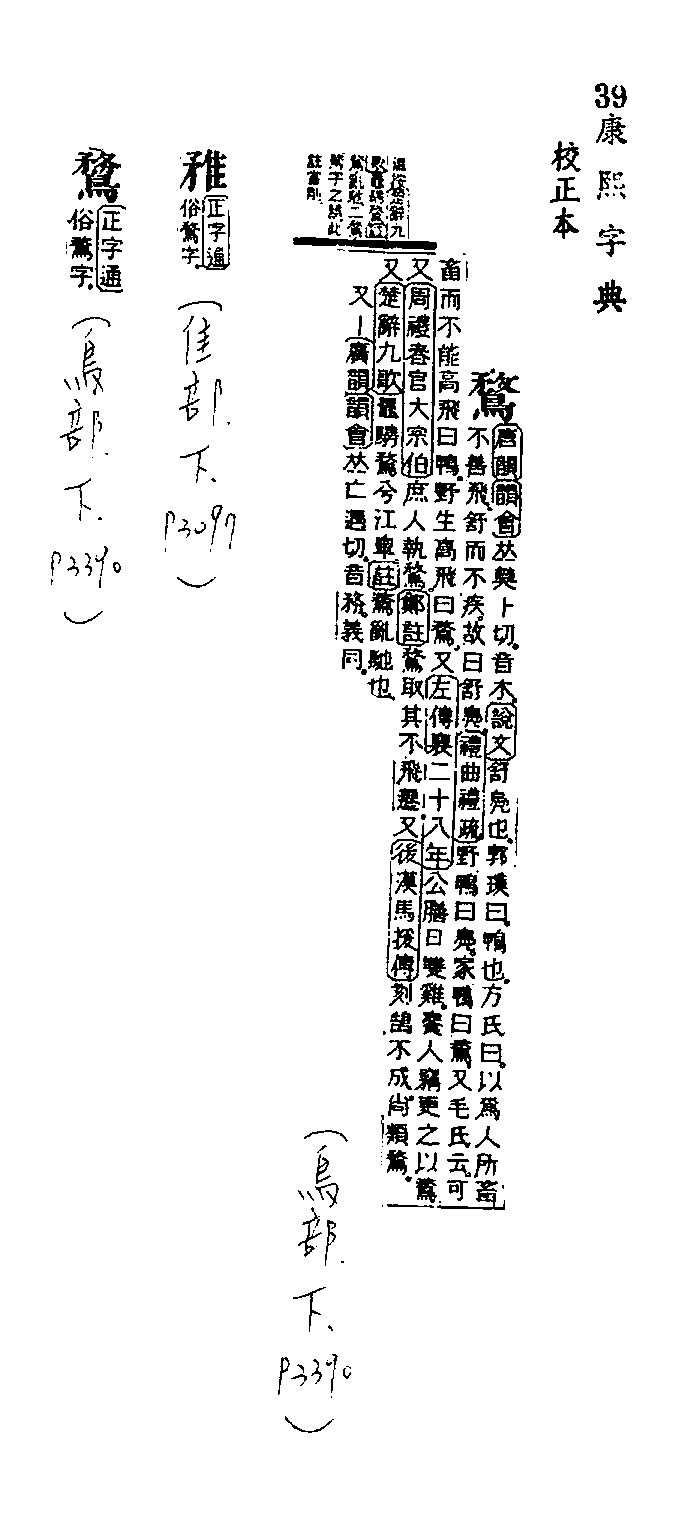 39 康熙字典
校正本
鶩
唐韻韻會𠀤莫卜切音木說文舒鳧也郭璞曰鴨也方氏曰以爲人所畜
不善飛舒而不疾故曰舒鳧禮曲禮疏野鴨曰鳧家鴨曰鶩又毛氏云可
畜而不能高飛曰鴨野生高飛曰鶩又左傳襄二十八年公膳日雙雞饔人竊更之以鶩
又周禮春官大宗伯庶人執鶩鄭註鶩取其不飛遷又後漢馬援傳刻鵠不成尚類鶩
又楚辭九歎 騁鶩兮江皋註鶩亂馳也
又丨廣韻韻會𠀤亡遇切音務義同
楚辭九
鶩亂馳二鶩
鶩字之 此
註當削
(鳥部.下.P3390)
雅
正字通
俗鶩字
(隹部.下.P3097)
鵞
正字通
俗鶩字
(鳥部.下.P3390)